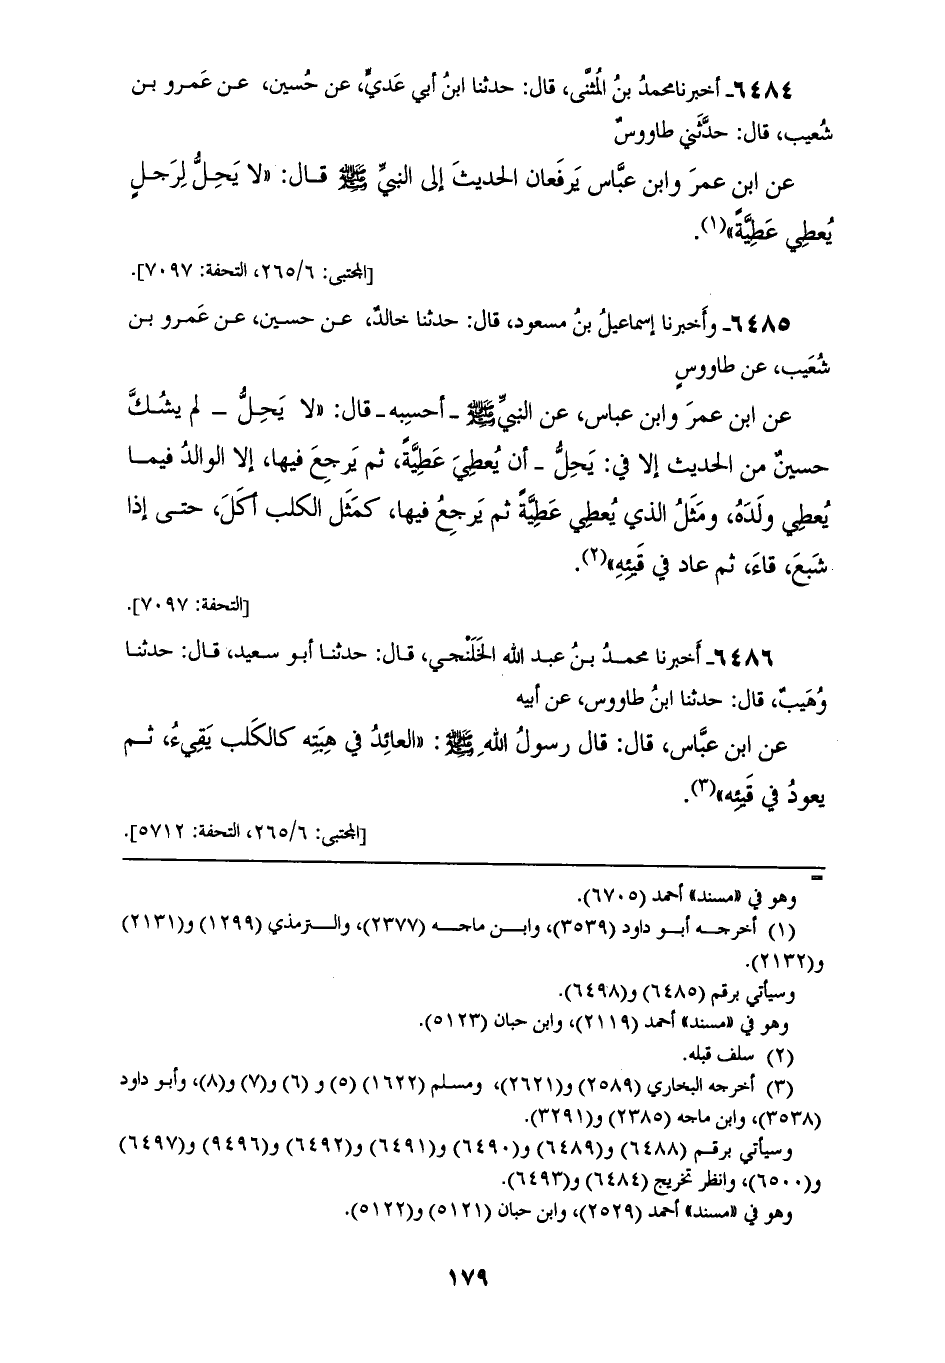 ٦٤٨٤ـ أخبرنا محمدُ بنُ المُثنَّى، قال: حدثنا ابنُ أبي عَديٍّ، عن حُسين، عـن عَمـرو بـن
شُعيب، قال: حدَّثَني طاووسٌ
عن ابن عمرَ وابن عبَّاس يَرفَعان الحديثَ إلى النبيِّ ﷺ قـال: «لا يَحِـلُّ لِرَجـلٍ
يُعطِي عَطِيَّةً»(١).
[المجتبى: ٢٦٥/٦، التحفة: ٧٠٩٧].
٦٤٨٥ـ وأَخبرنا إسماعيلُ بنُ مسعود، قال: حدثنا خالدٌ، عـن حسين، عـن عَمرو بـن
شُعَيب، عن طاووسٍ
عن ابن عمرَ وابن عباس، عن النبيِّ ﷺ ـ أحسِبه ـ قال: «لا يَحِـلُّ ـ لم يشُـكَّ
حسينٌ من الحديث إلا في: يَحِلُّ ـ أن يُعطِيَ عَطِيَّةً، ثم يَرجِعَ فيها، إلا الوالدُ فيمـا
يُعطِي ولَدَهُ، ومَثَلُ الذي يُعطِي عَطِيَّةً ثم يَرجِعُ فيها، كمَثَل الكلب أكَلَ، حتـى إذا
شَبعَ، قاءَ، ثم عاد في قَيئِهِ»(٢).
[التحفة: ٧٠٩٧].
٦٤٨٦ـ أَخبرنا محمـدُ بـنُ عبـد الله الخَلَنْجـي، قـال: حدثنـا أبـو سـعيد، قـال: حدثنـا
وُهَيبٌ، قال: حدثنا ابنُ طاووس، عن أبيه
عن ابن عبَّاس، قال: قال رسولُ اللهِ ﷺ: «العائِدُ في هِبَتِه كالكَلب يَقِيءُ، ثـم
يعودُ في قَيئِه»(٣).
[المجتبى: ٢٦٥/٦، التحفة: ٥٧١٢].
=
وهو في «مسند» أحمد (٦٧٠٥).
(١) أخرجـه أبـو داود (٣٥٣٩)، وابـن ماجـه (٢٣٧٧)، والـترمذي (١٢٩٩) و(٢١٣١)
و(٢١٣٢).
وسيأتي برقم (٦٤٨٥) و(٦٤٩٨).
وهو في «مسند» أحمد (٢١١٩)، وابن حبان (٥١٢٣).
(٢) سلف قبله.
(٣) أخرجه البخاري (٢٥٨٩) و(٢٦٢١)، ومسلم (١٦٢٢) (٥) و (٦) و(٧) و(٨)، وأبو داود
(٣٥٣٨)، وابن ماجه (٢٣٨٥) و(٣٢٩١).
وسيأتي برقـم (٦٤٨٨) و(٦٤٨٩) و(٦٤٩٠) و(٦٤٩١) و(٦٤٩٢) و(٩٤٩٦) و(٦٤٩٧)
و(٦٥٠٠)، وانظر تخريج (٦٤٨٤) و(٦٤٩٣).
وهو في «مسند» أحمد (٢٥٢٩)، وابن حبان (٥١٢١) و(٥١٢٢).
١٧٩